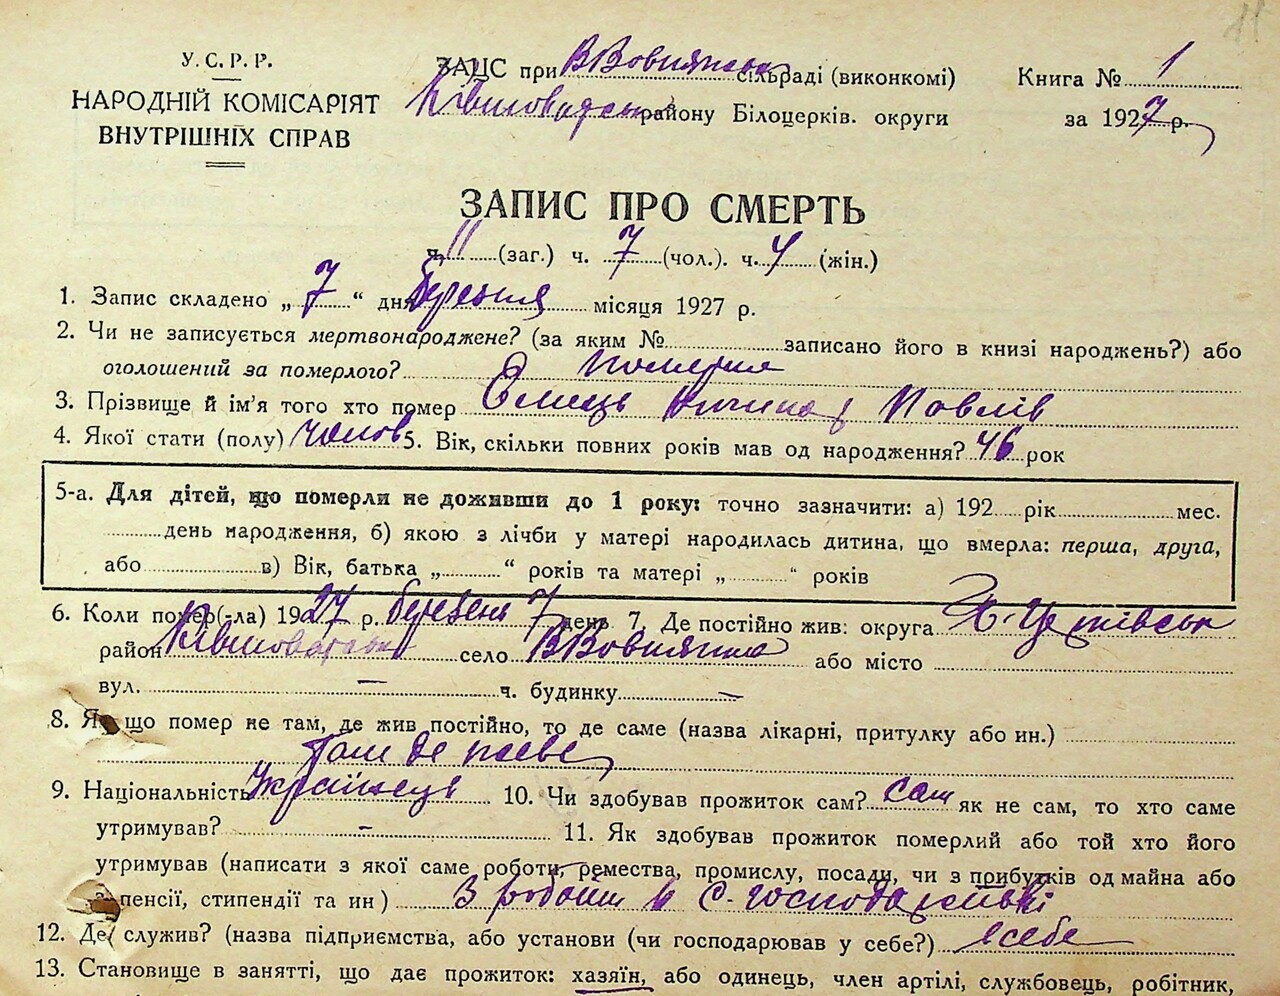 11
У.С.Р.Р.
НАРОДНІЙ КОМІСАРІЯТ
ВНУТРІШНІХ СПРАВ
ЗАЦС при В Вовнянськ сільраді (виконкомі)
Ківшоватськ району Білоцерків. округи
Книга № 1
за 1927 р.
ЗАПИС ПРО СМЕРТЬ
ч. 11 (заг.) ч. 7 (чол.). ч. 4 (жін.)
1. Запис складено „ 7 “ дня березня місяця 1927 р.
2. Чи не записується мертвонароджене? (за яким № записано його в книзі народжень?) або
оголошений за померлого? померлий
3. Прізвище й ім'я того хто помер Ємець Павлів
4. Якої стати (полу) чолов 5. Вік, скільки повних років мав од народження? 46 рок
5-а. Для дітей, що померли не доживши до 1 року: точно зазначити: а) 192 рік мес.
день народження, б) якою з лічби у матері народилась дитина, що вмерла: перша, друга,
або в) Вік, батька „ “ років та матері „ “ років
6. Коли помер(-ла) 1927 р. березень 7 день 7. Де постійно жив: округа Б-Церківськ
район Ківшоватськ село В Вовнянка або місто
вул. — ч. будинку —
8. Якщо помер не там, де жив постійно, то де саме (назва лікарні, притулку або ин.)
Там де живе
9. Національність Українець 10. Чи здобував прожиток сам? Сам як не сам, то хто саме
утримував? - 11. Як здобував прожиток померлий або той хто його
утримував (написати з якої саме роботи, ремества, промислу, посади, чи з прибутків од майна або
з пенсії, стипендії та ин) З роботи в С. господарстві
12. Де служив? (назва підприємства, або установи (чи господарював у себе?) в себе
13. Становище в занятті, що дає прожиток: хазяїн, або одинець, член артілі, службовець, робітник,